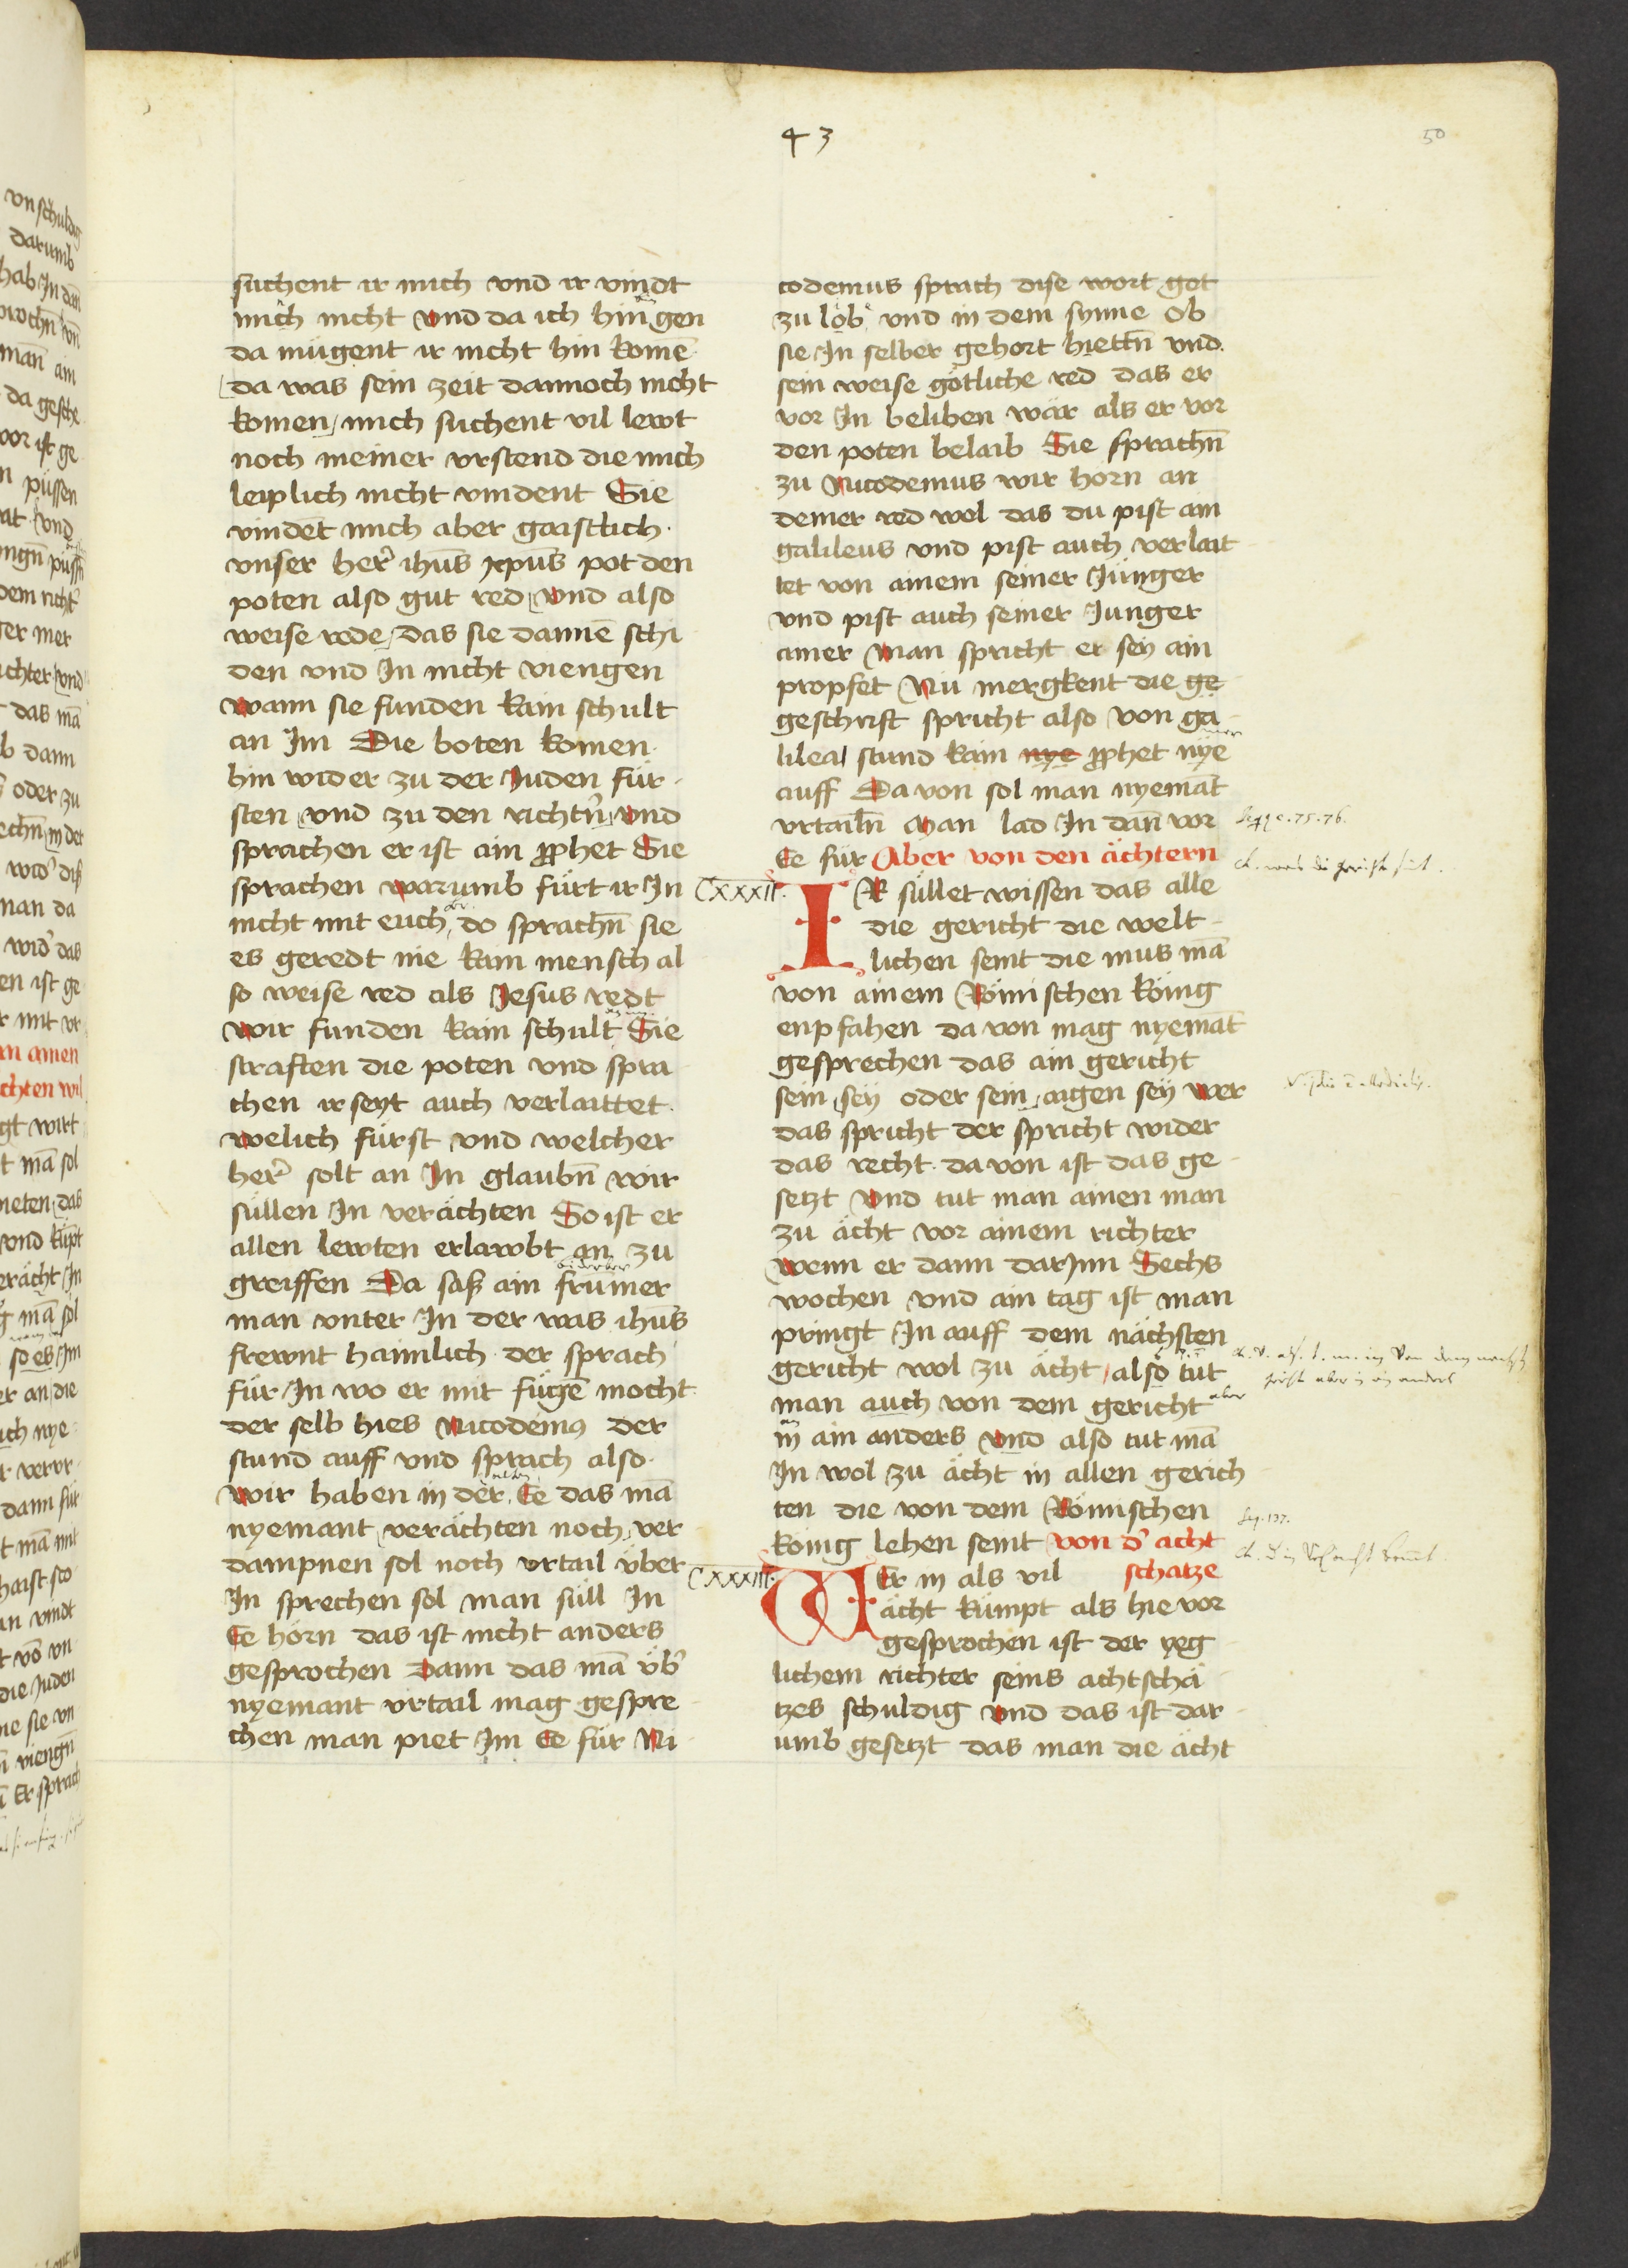 43
50
suchent ir mich vnd ir vindt
mich nicht vnd da ich hin gen
da mügent ir nicht hin komē
da was sein zeit dannoch nicht
komen, mich suchent vil lewt
noch meiner vrstend die mich
leiplich nicht vindent Sie
vindēt mich aber gaistlich.
vnser her͛ ihūs xp̄us pot den
poten also gut red vnd also
weise rede, das sie dannē schi
den vnd In nicht viengen
wann sie funden kain schult
an Im Die boten komen
hin wider zu der Juden für
sten vnd zu den richtn̄ vnd
sprachen er ist ain ꝓphet Sie
sprachen warumb fürt ir In
nicht mit euch, do sprachn̄ sie
es geredt nie kain mensch al
so weise red als Jesus redt
wir funden kain schult Sie
straften die poten vnd spra
chen ir seyt auch verlaittet.
welich fürst vnd welcher
her͛ solt an In glaubn̄ wir
süllen In verächten So ist er
allen lewten erlawbt an zu
greiffen Da saß ain frumer
man vnter In der was ihūs
frewnt haimlich der sprach
für In wo er mit fügē mocht
der selb hies Nicodemꝰ der
stund auff vnd sprach also.
wir haben in der Ee das mā
nyemant verächten noch ver
dampnen sol noch vrtail über
In sprechen sol man süll In
Ee hörn das ist nicht anders
gesprochen Dann das mā üb͛
nyemant vrtail mag gespre
chen man piet Im Ee für Ni
codemus sprach dise wort got
zu lob vnd in dem synne Ob
sie In selber gehort hiettn̄ vnd
sein weise götliche red das er
vor In beliben wär als er vor
den poten belaib Sie sprachn̄
zu Nicodemus wir horn an
deiner red wol das du pist ain
galileus vnd pist auch verlait
tet von ainem seiner Jünger
vnd pist auch seiner Junger
ainer Man spricht er sey ain
propfet Nu mergkent die ge
geschrift spricht also von ga
lilea stund kain nye ꝓphet nye
auff Da von sol man nyemāt
vrtailn̄ Man lad In dān vor
Ee für Aber von den ächtern
CXXXII.
IR süllet wissen das alle
die gericht die welt
lichen seint die mus mā
von ainem Römischen könig
enpfahen da von mag nyemāt
gesprechen das ain gericht
sein sey oder sein aigen sey wer
das spricht der spricht wider
das recht. da von ist das ge
setzt vnd tut man ainen man
zu ächt vor ainem richter
wenn er dann darInn Sechs
wochen vnd ain tag ist man
pringt In auff dem nächsten
gericht wol zu ächt, also tut
man auch von dem gericht aber
in ain anders vnd also tut mā
In wol zu ächt in allen gerich
ten die von dem Römischen
könig lehen seint von d͛ acht
schatze
CXXXIII.
WEr in als vil
ächt kümpt als hie vor
gesprochen ist der yeg
lichem richter seins achtschä
tzes schuldig vnd das ist dar
umb gesetzt das man die ächt